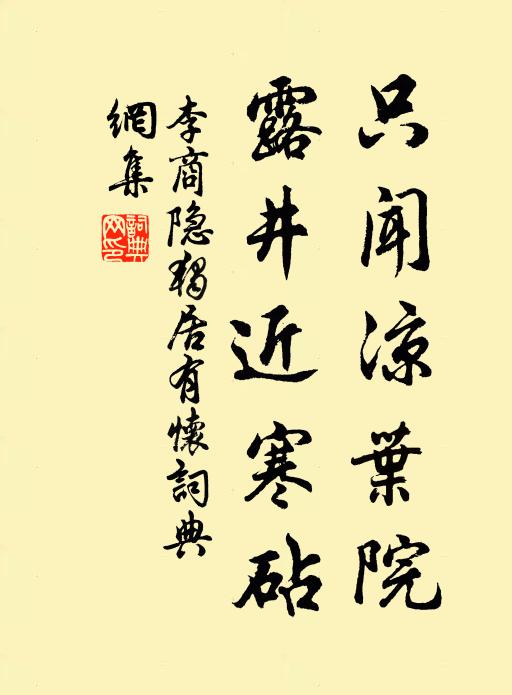 只闻凉葉院
露井近寒砧
李商隐獨居有懷詞典
網集
詞典
网印